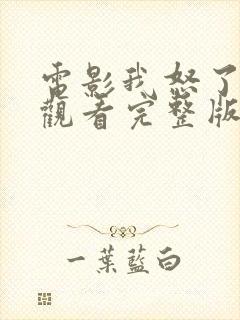 電影我怒了
觀看完整版
一葉藍白